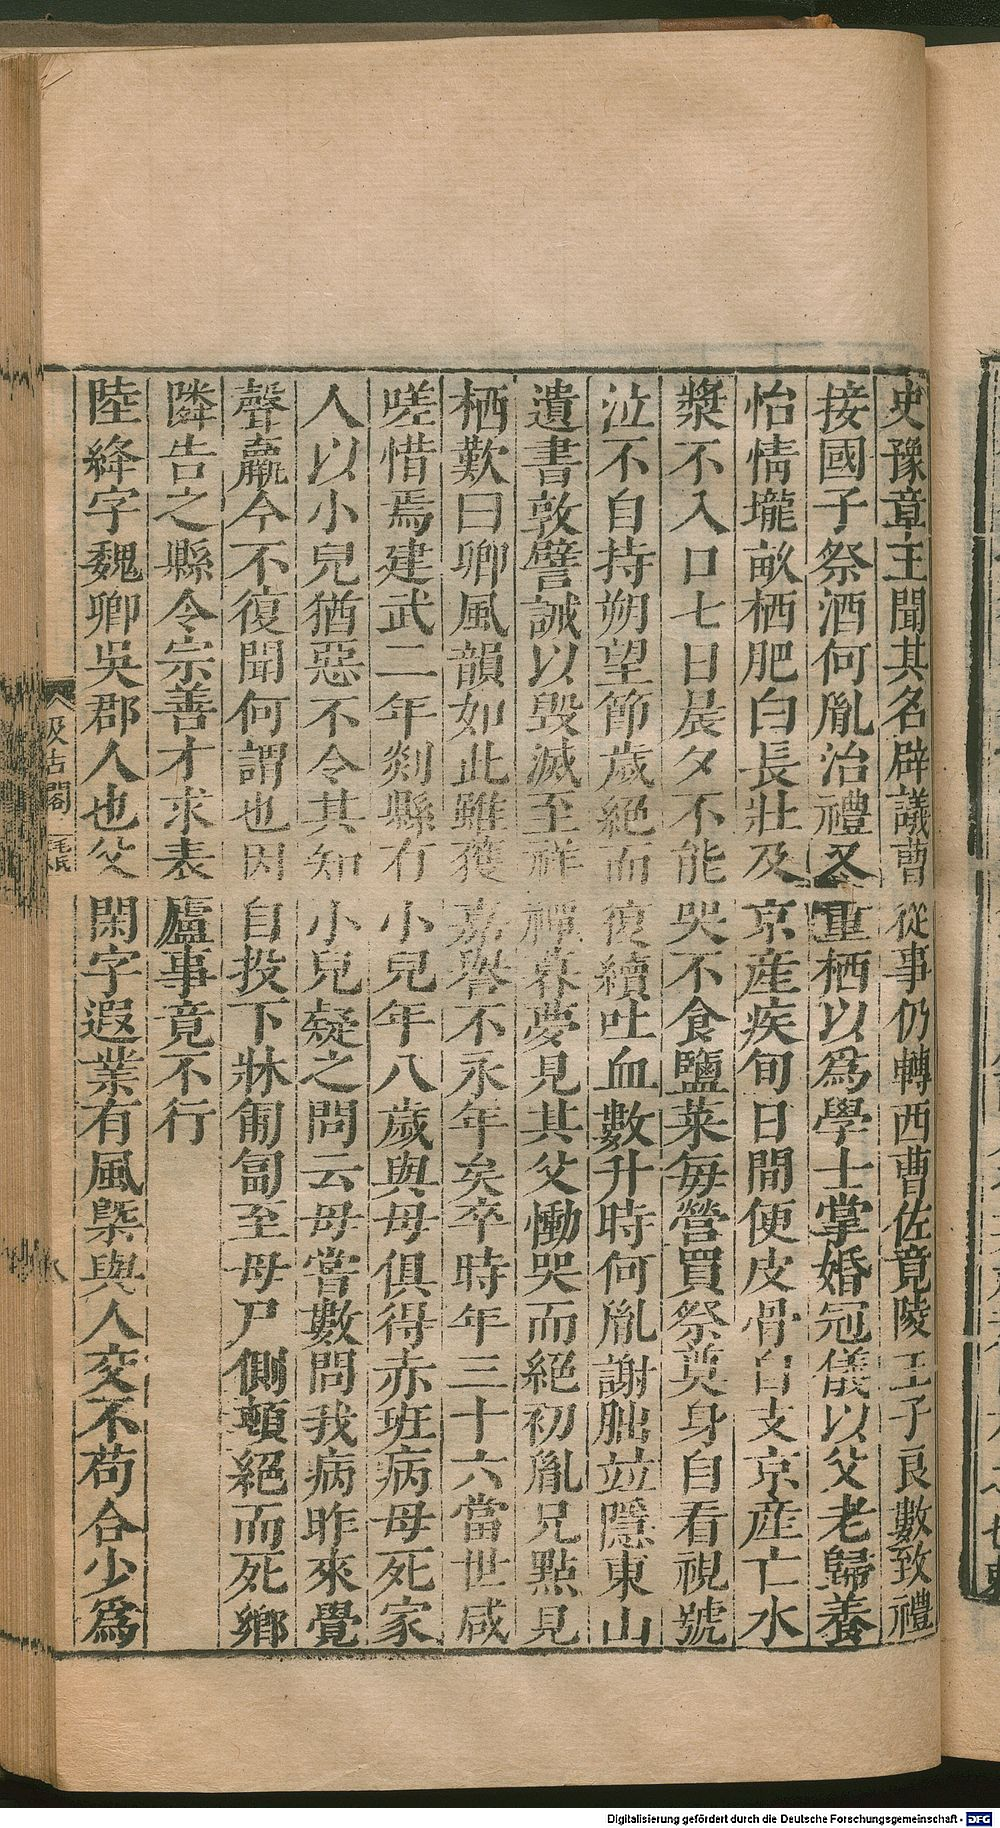 史豫章王聞其名辟議曹從事仍轉西曹佐竟陵王子良數致禮
接國子祭酒何胤治禮又重栖以爲學士掌婚冠儀以父老歸養
怡情壠畝栖肥白長壯及京產疾旬日間便皮骨自支京產亡水
漿不入口七日晨夕不能哭不食鹽菜每營買祭奠身自看視號
泣不自持朔望節歲絕而復續吐血數升時何胤謝朏竝隱東山
遺書敦譬誡以毀滅至祥禫暮夢見其父慟哭而絕初胤兄點見
栖歎曰卿風韻如此雖獲嘉譽不永年矣卒時年三十六當世咸
嗟惜焉建武二年剡縣有小兒年八歲與母俱得赤班病母死家
人以小兒猶惡不令其知小兒疑之問云母嘗數問我病昨來覺
聲羸今不復聞何謂也因自投下牀匍匐至母尸側頓絕而死鄉
隣告之縣令宗善才求表廬事竟不行
陸絳字魏卿吳郡人也父閑字遐業有風槩與人交不苟合少爲
汲古閣
毛氏
八
Digitalisierung gefördert durch die Deutsche Forschungsgemeinschaft - DFG